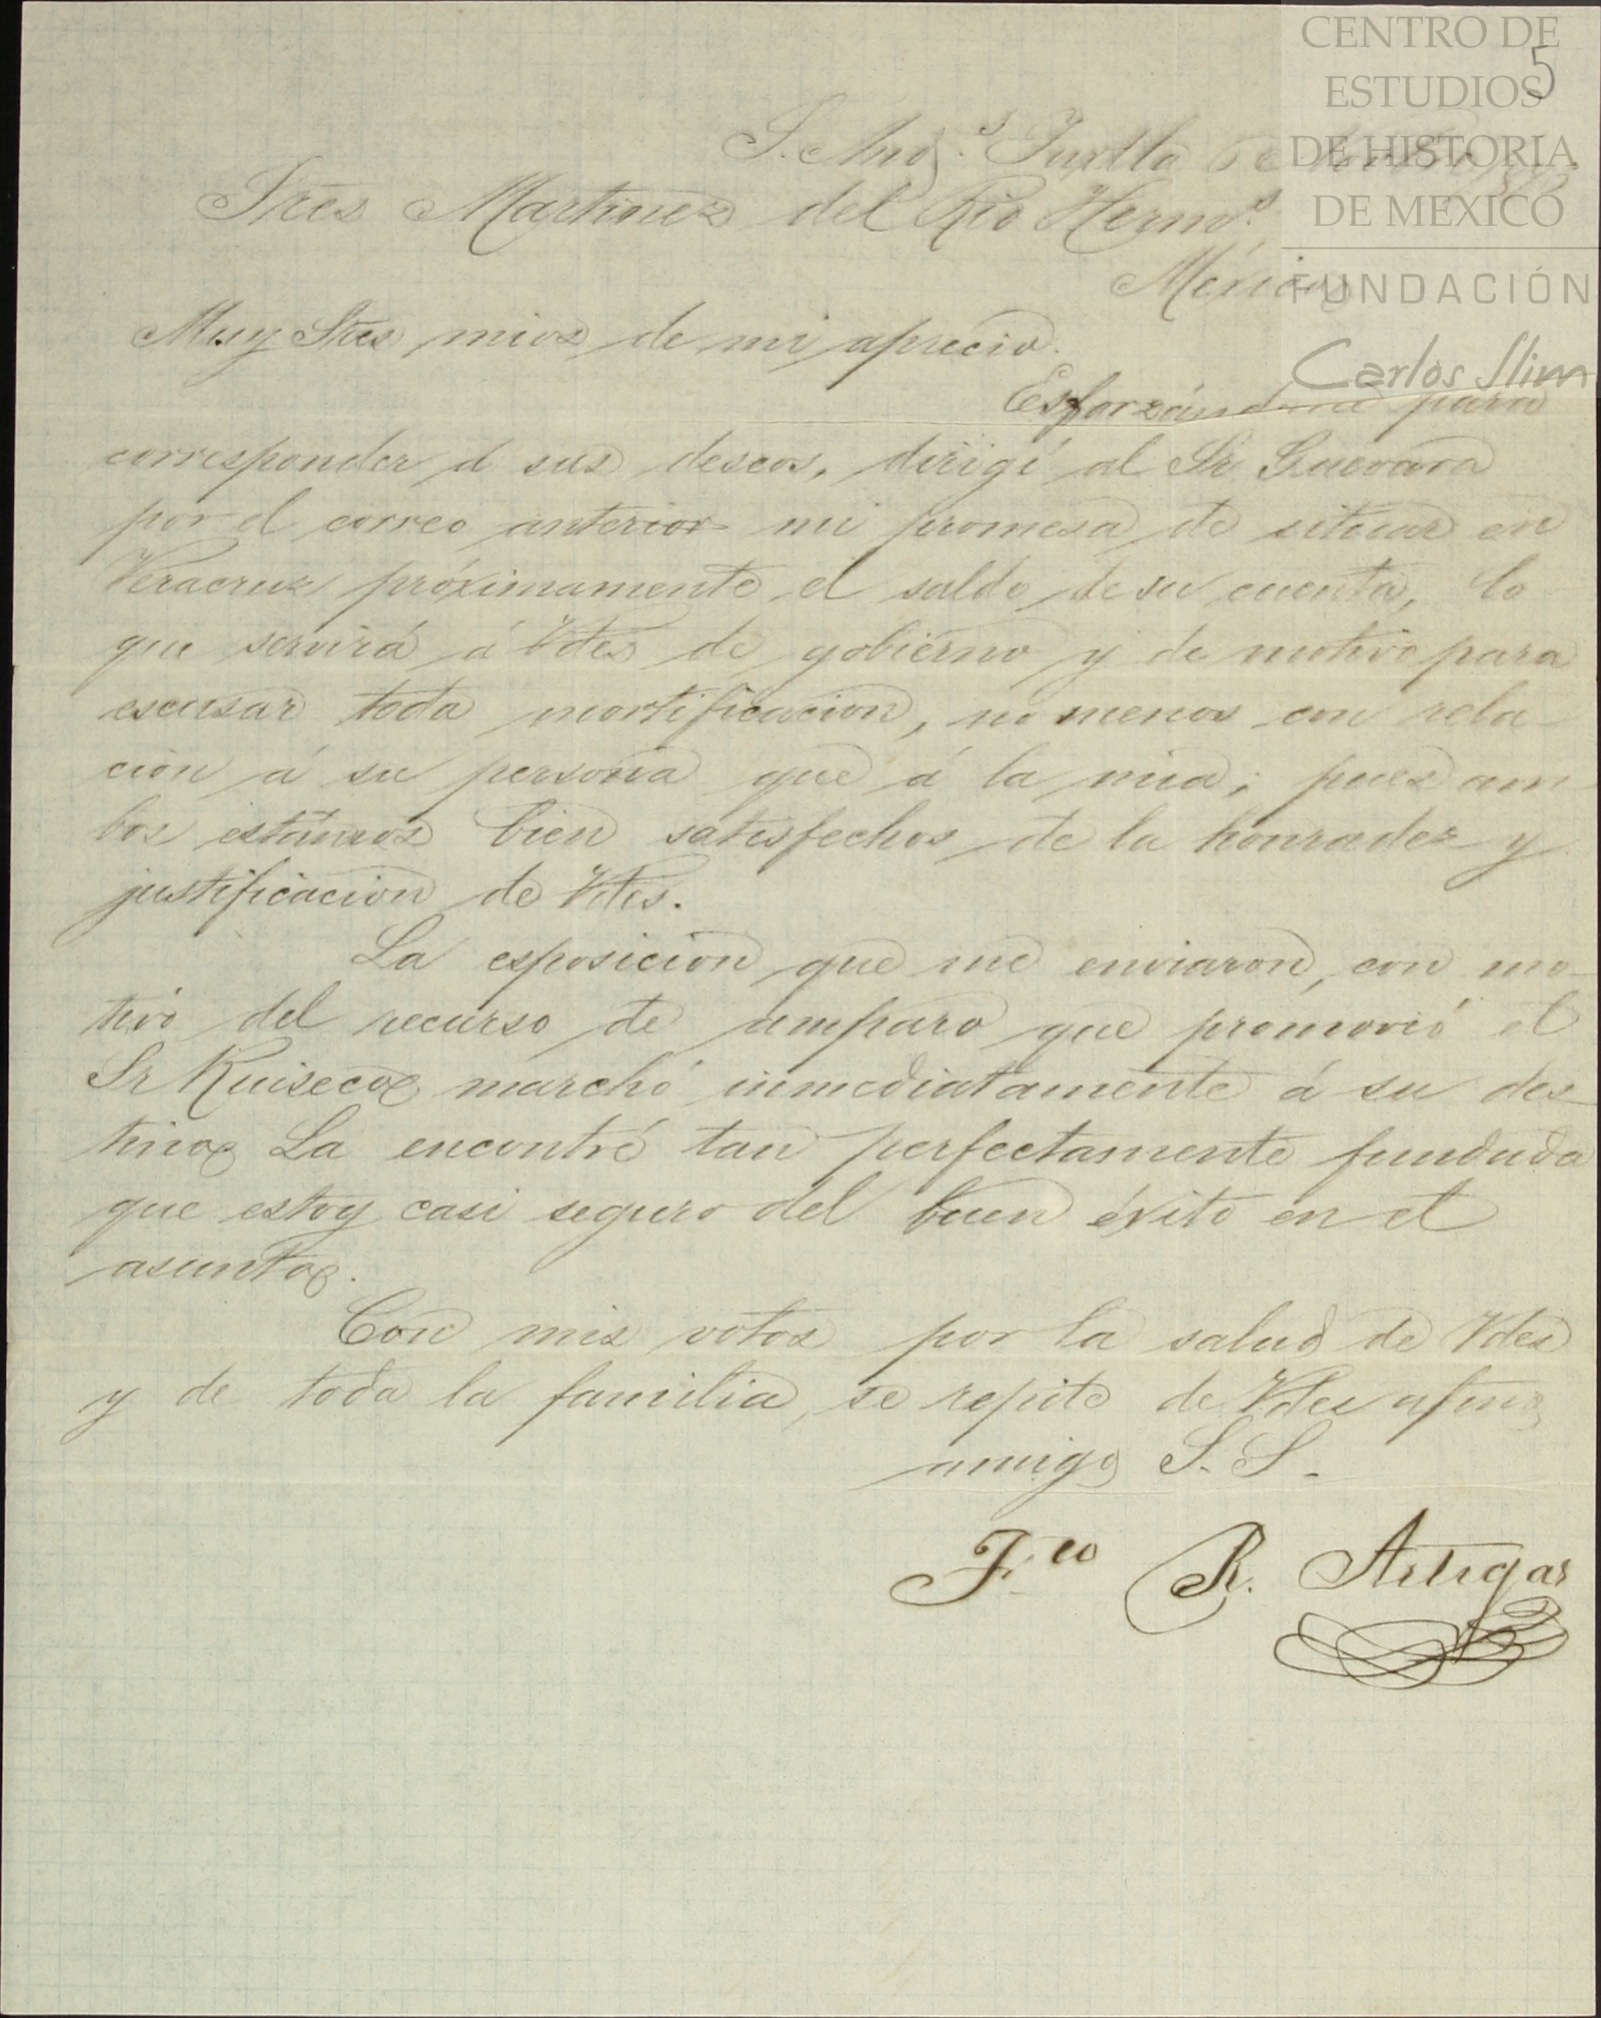 CENTRO DE
ESTUDIOS
DE HISTORIA
DE MEXICO
FUNDACIÓN
Carlos Slim
5
S. And.s Tuxtla 6
Sres Martinez del Rio Hermo.s
México
Muy Sres mios de mi aprecio.
Esforzándome para
corresponder á sus deseos, dirigí al Sr Guevara
por el correo anterior mi promesa de situar en
Veracruz próximamente el saldo de su cuenta, lo
que servirá á Vdes de gobierno y de motivo para
escusar toda mortificacion, no menos con rela-
cion á su persona que á la mia; pues am-
bos estamos bien satisfechos de la honradez y
justificacion de Vdes.
La esposicion que me enviaron, con mo-
tivo del recurso de amparo que promovió el
Sr Ruiseco marchó inmediatamente á su des-
tino. La encontré tan perfectamente fundada
que estoy casi seguro del buen éxito en el
asunto.
Con mis votos por la salud de Vdes
y de toda la familia, se repite de Vdes afmo
amigo S. S.
F.co R. Artigas